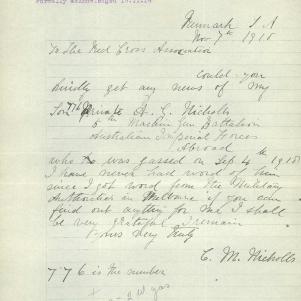 Formally acknowledged 18.11.18
Newmark S.A
Nov 7th 1918
To The Red Cross Association
Could you
kindly get any news of my
Son 776 Private A. C. Nicholls
6th Machine Gun Battalion
Australian Imperial Forces
Abroad
who was gassed on Sep 4th 1918
I have never had word of him
since I got word from the Military
Authorities in Melbourne if you can
find out anything for me I shall
be very grateful I remain
Yours very truly
C. M. Nicholls
776 is the number